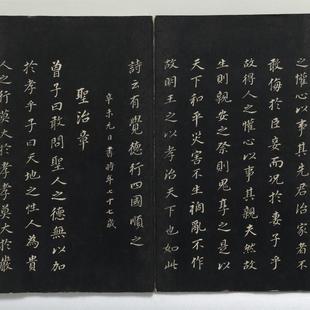 之懽心以事其先君治家者不
敢侮於臣妾而况於妻子乎
故得人之懽心以事其親夫然故
生則親安之祭則鬼享之是以
天下和平災害不生禍亂不作
故明王之以孝治天下也如此
詩云有覺德行四國順之
辛未元日書時年七十七歲
聖治章
曾子曰敢問聖人之德無以加
於孝乎子曰天地之性人為貴
人之行莫大於孝孝莫大於嚴